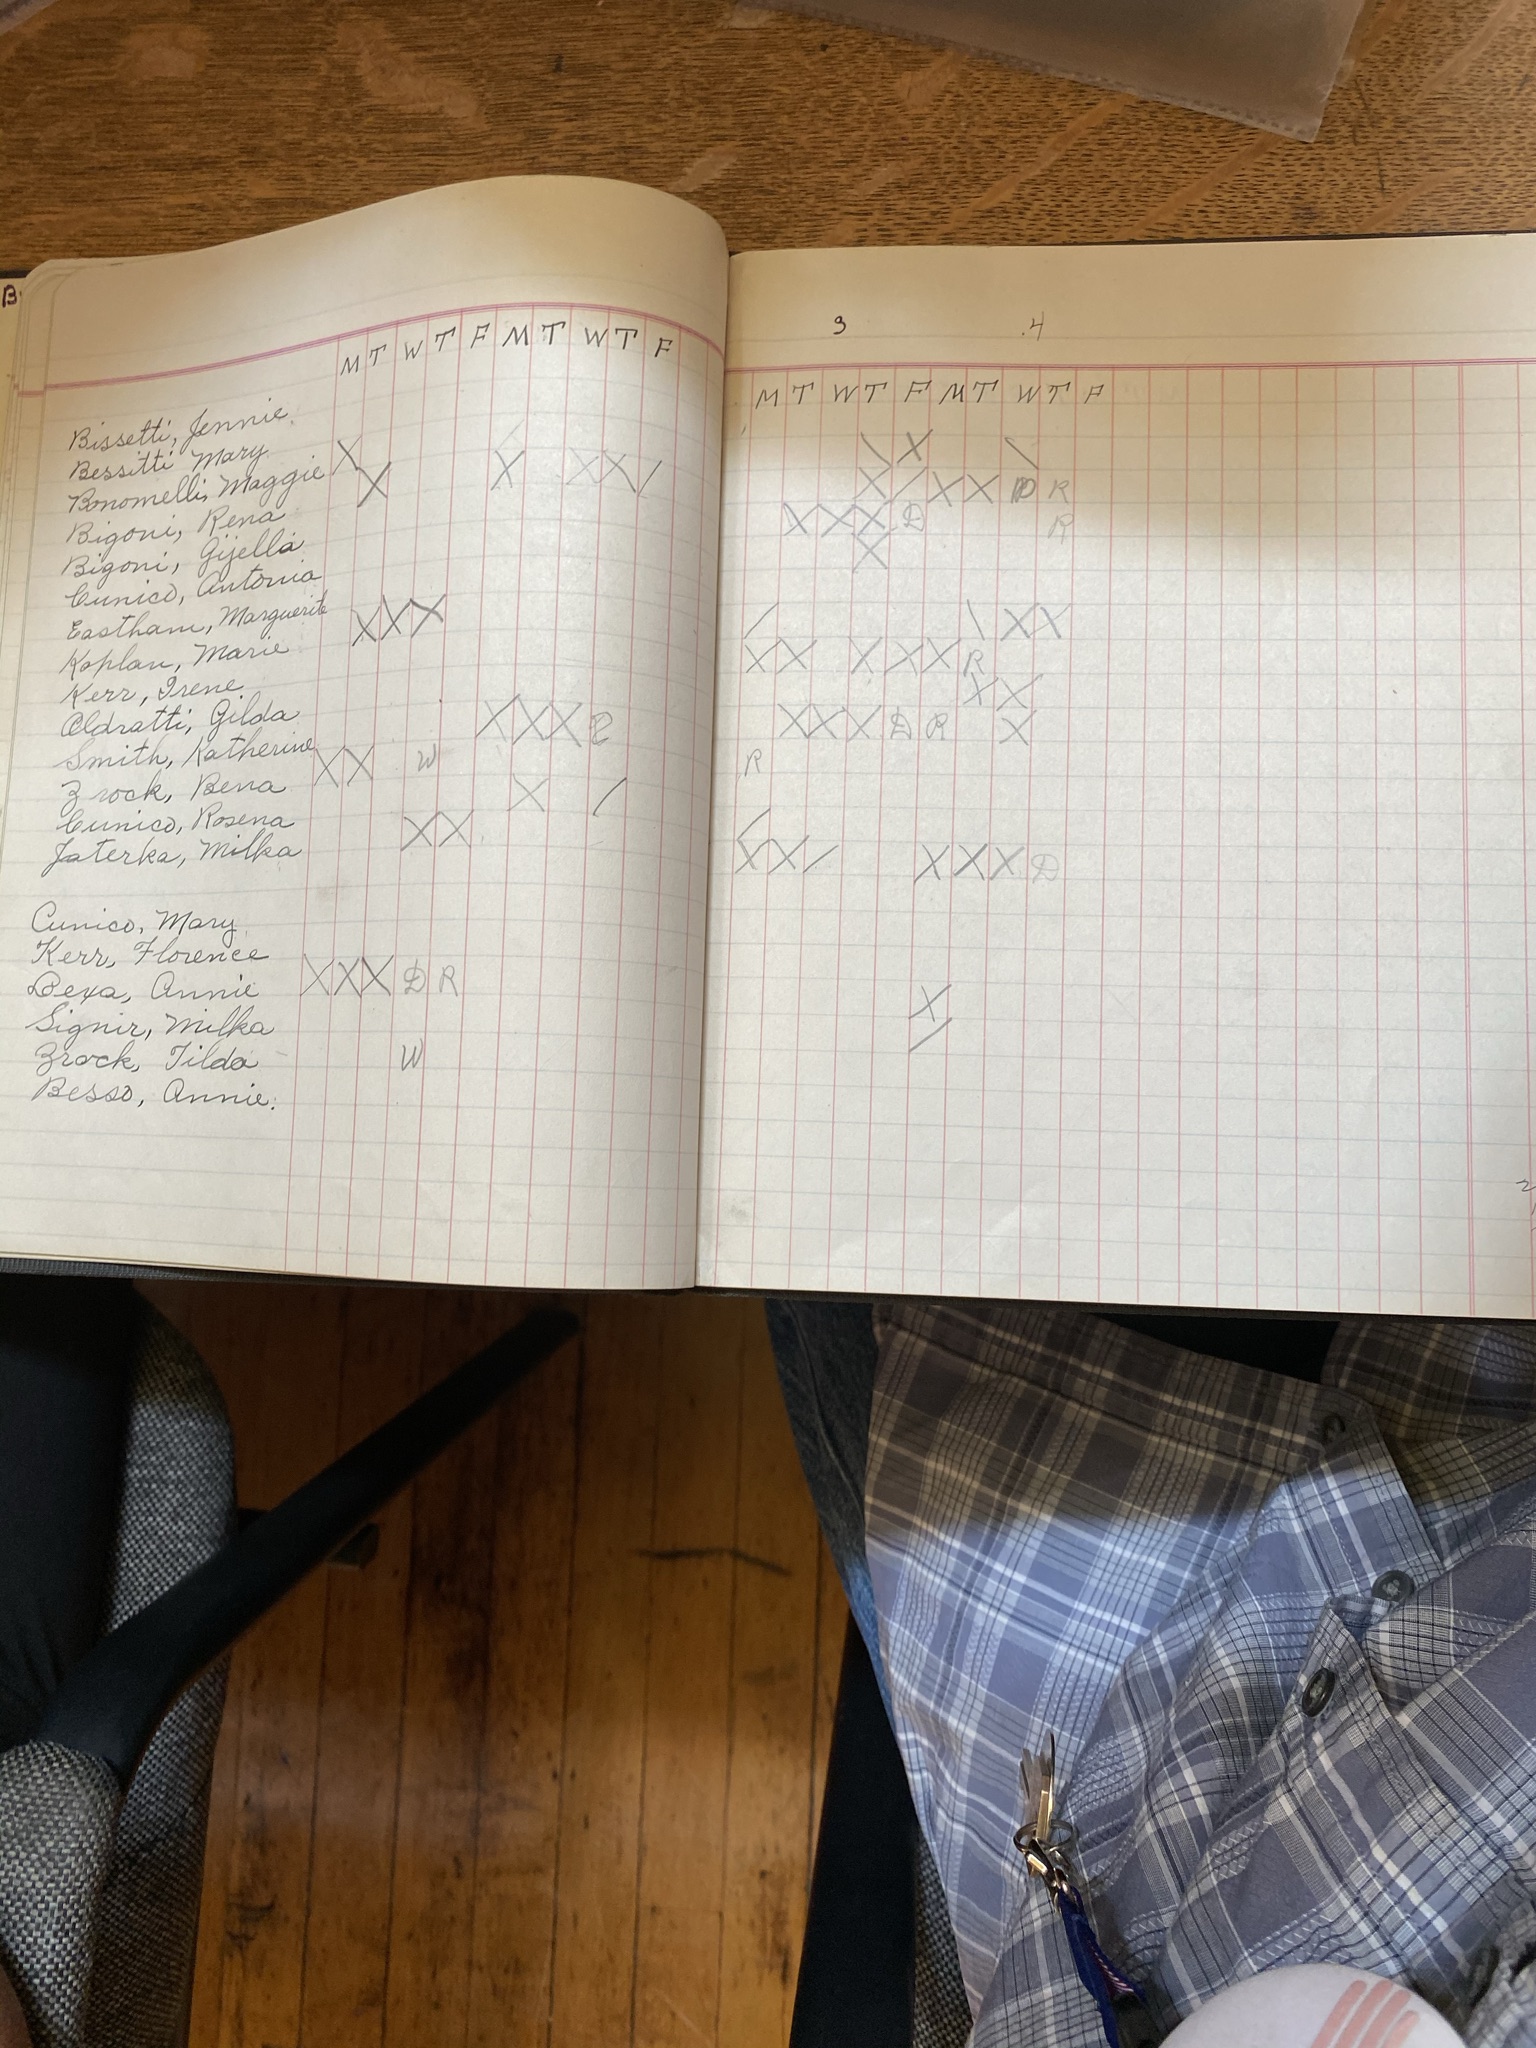 B
M T W T F M T W T F
Bissetti, Jennie
Bessitti Mary X X X X /
Bonomelli, Maggie X
Bigoni, Rena
Bigoni, Gijella
Cunico, Antonia
Eastham, Marguerite X X X
Koplan, Marie
Kerr, Irene
Aldratti, Gilda X X X
Smith, Katherine X X W
Zrock, Bena X /
Cunico, Rosena X X
Jaterka, Milka
Cunico, Mary
Kerr, Florence X X X D R
Bexa, Annie
Signir, Milka
Zrock, Tilda W
Besso, Annie.
3 .4
M T W T F M T W T F
\ X \
X / X X D R
X X X D R
X
/ \ X X
X X X X X R
X X
X X X D R X
R
/
X X / X X X D
X
/